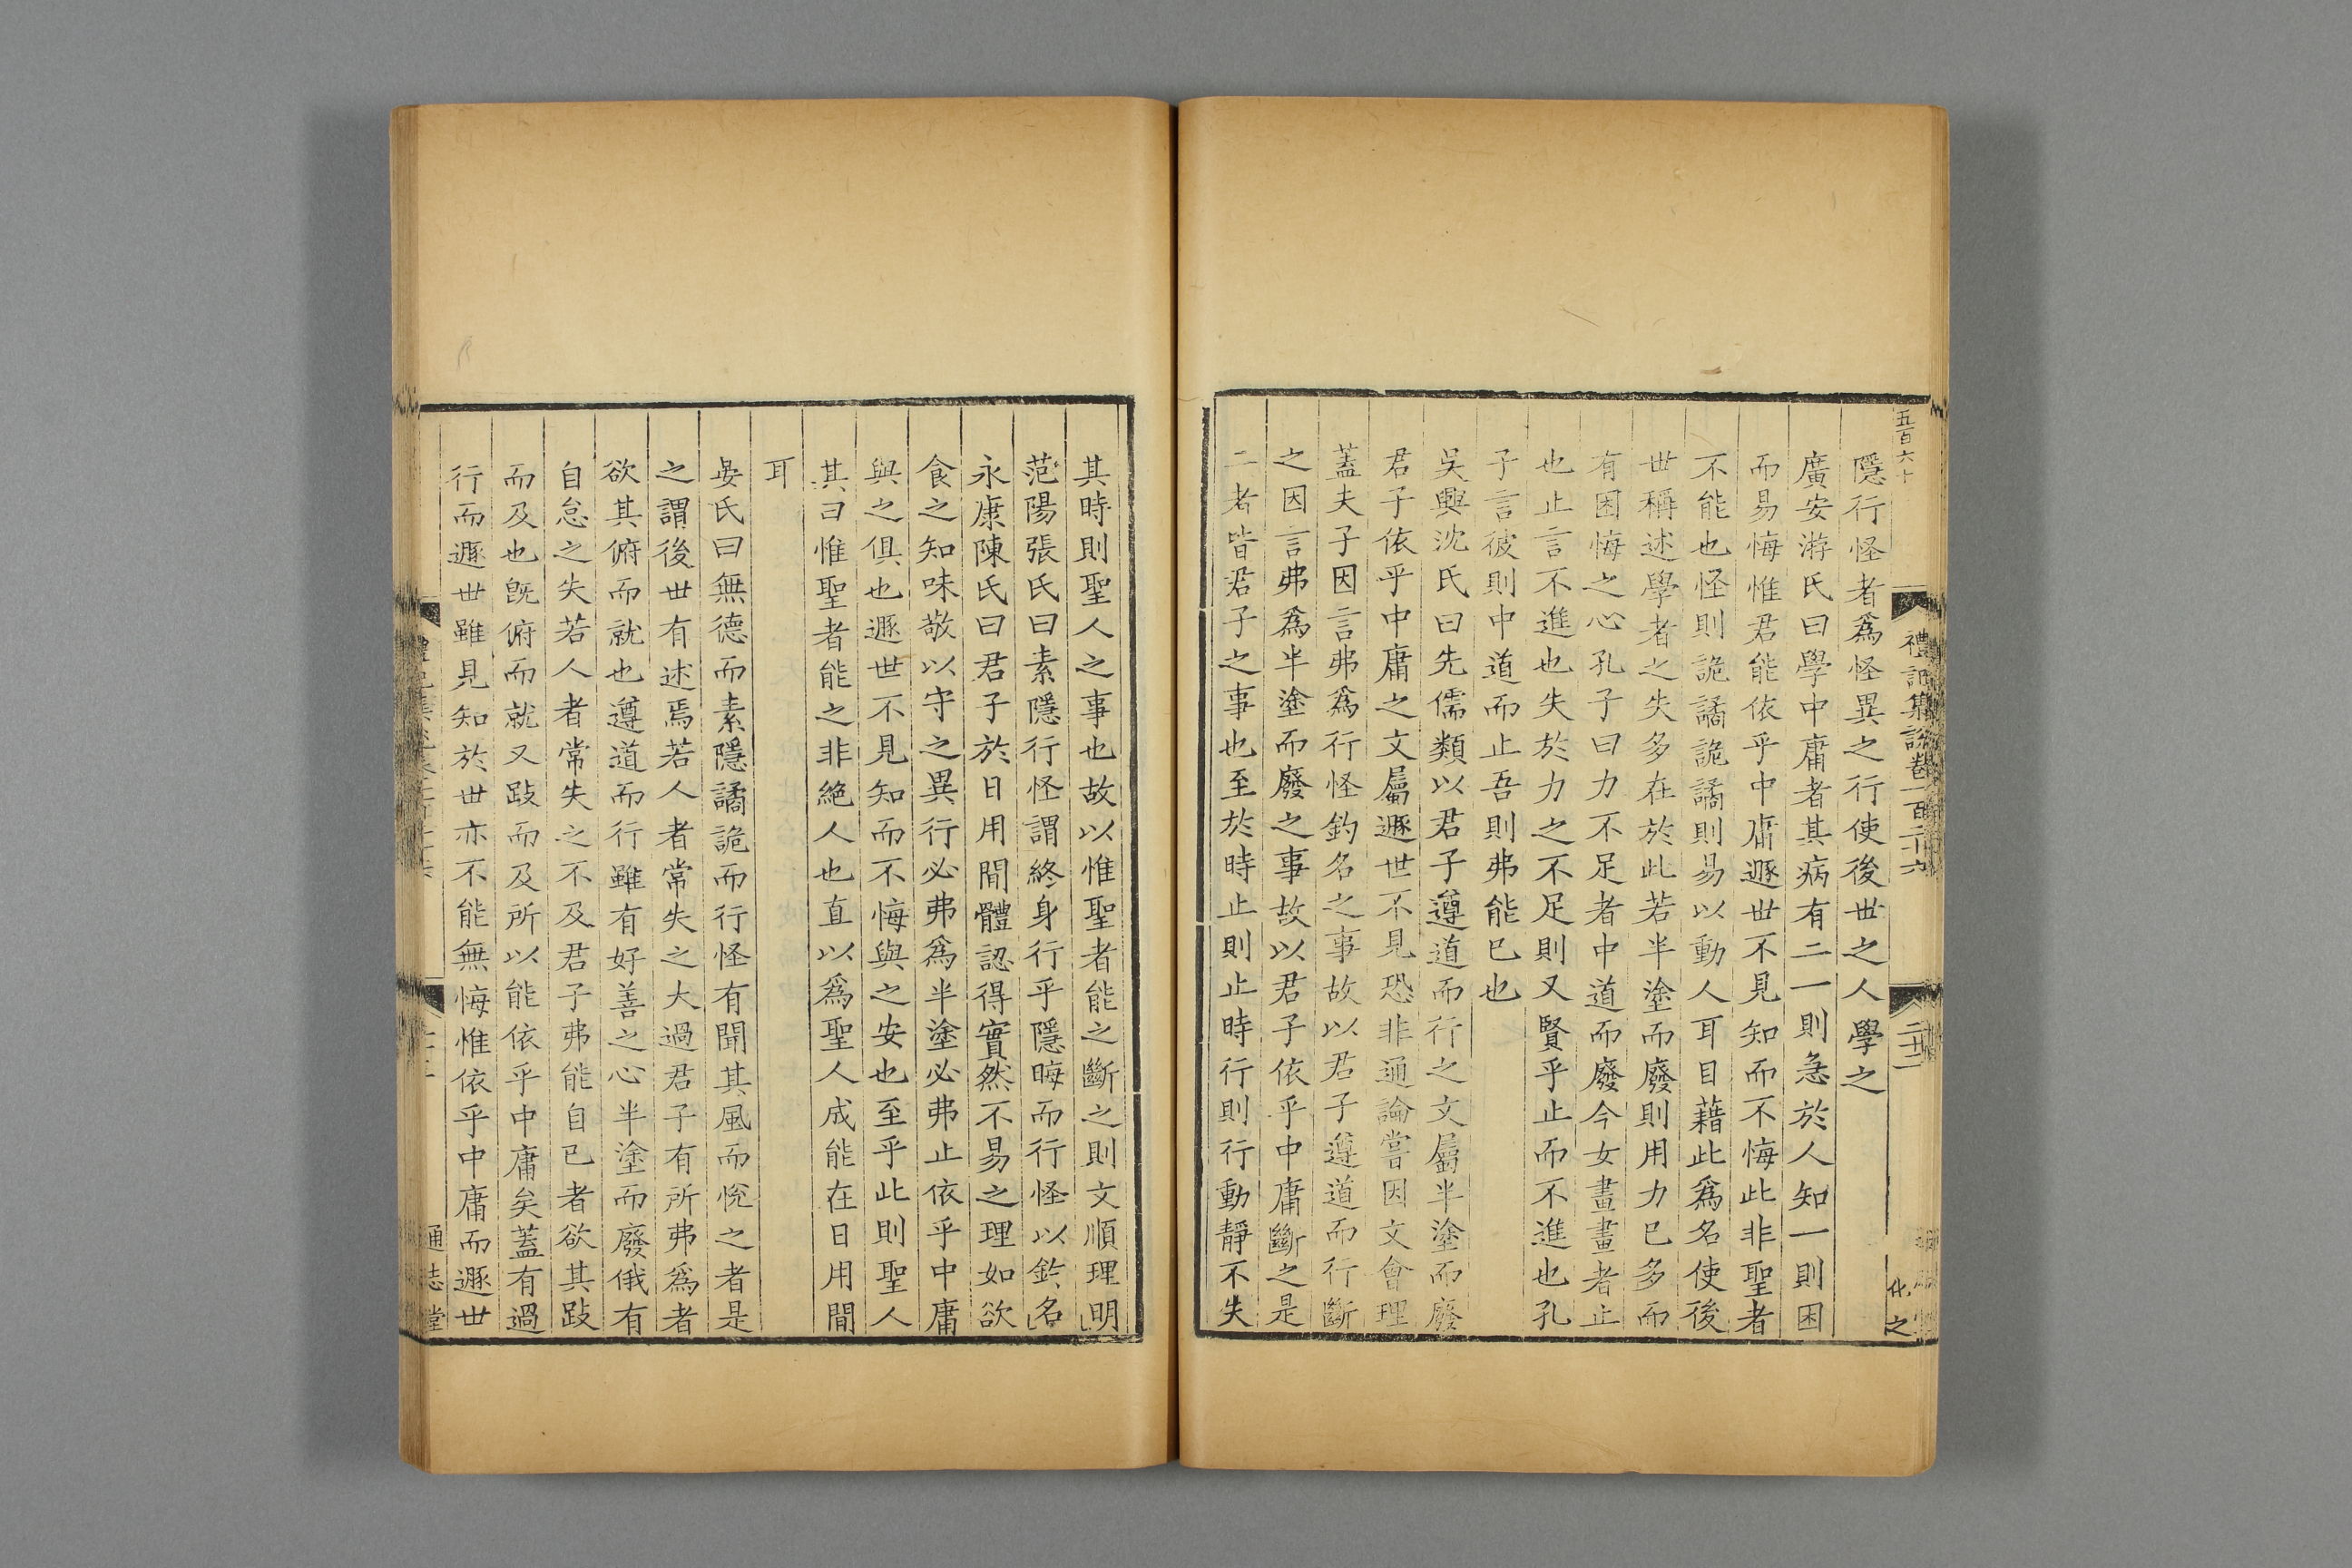 五百六十
禮記集說卷一百二十六
二十二
隱行怪者爲怪異之行使後世之人學之
廣安游氏曰學中庸者其病有二一則急於人知一則困
而易悔惟君能依乎中庸遯世不見知而不悔此非聖者
不能也怪則詭譎詭譎則易以動人耳目藉此爲名使後
世稱述學者之失多在於此若半塗而廢則用力已多而
有困悔之心孔子曰力不足者中道而廢今女畫畫者止
也止言不進也失於力之不足則又賢乎止而不進也孔
子言彼則中道而止吾則弗能已也
吳興沈氏曰先儒類以君子遵道而行之文屬半塗而廢
君子依乎中庸之文屬遯世不見恐非通論嘗因文會理
蓋夫子因言弗爲行怪釣名之事故以君子遵道而行斷
之因言弗爲半塗而廢之事故以君子依乎中庸斷之是
二者皆君子之事也至於時止則止時行則行動靜不失
其時則聖人之事也故以惟聖者能之斷之則文順理明
范陽張氏曰素隱行怪謂終身行乎隱晦而行怪以釣名
永康陳氏曰君子於日用間體認得實然不易之理如欲
食之知味敬以守之異行必弗爲半塗必弗止依乎中庸
與之俱也遯世不見知而不悔與之安也至乎此則聖人
其曰惟聖者能之非絶人也直以爲聖人成能在日用間
耳
晏氏曰無德而素隱譎詭而行怪有聞其風而悅之者是
之謂後世有述焉若人者常失之大過君子有所弗爲者
欲其俯而就也遵道而行雖有好善之心半塗而廢俄有
自怠之失若人者常失之不及君子弗能自已者欲其跂
而及也旣俯而就又跂而及所以能依乎中庸矣蓋有過
行而遯世雖見知於世亦不能無悔惟依乎中庸而遯世
通志堂